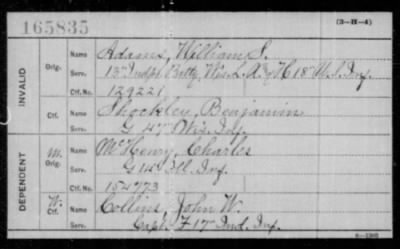 165835
(3-H-4)
INVALID
Orig.
Name Adams, William S.
Serv. 13" Indpt Batty, Wis. L. A. & H 18" U.S. Inf.
Ctf. No. 129221
Ctf.
Name Shockley, Benjamin
Serv. G 47 Wis. Inf.
DEPENDENT
M. Orig.
Name McHenry, Charles
Serv. G 14 Ill. Inf.
Ctf. No. 154773
W. Ctf.
Name Collins, John W.
Serv. Capt. F 17 Ind. Inf.